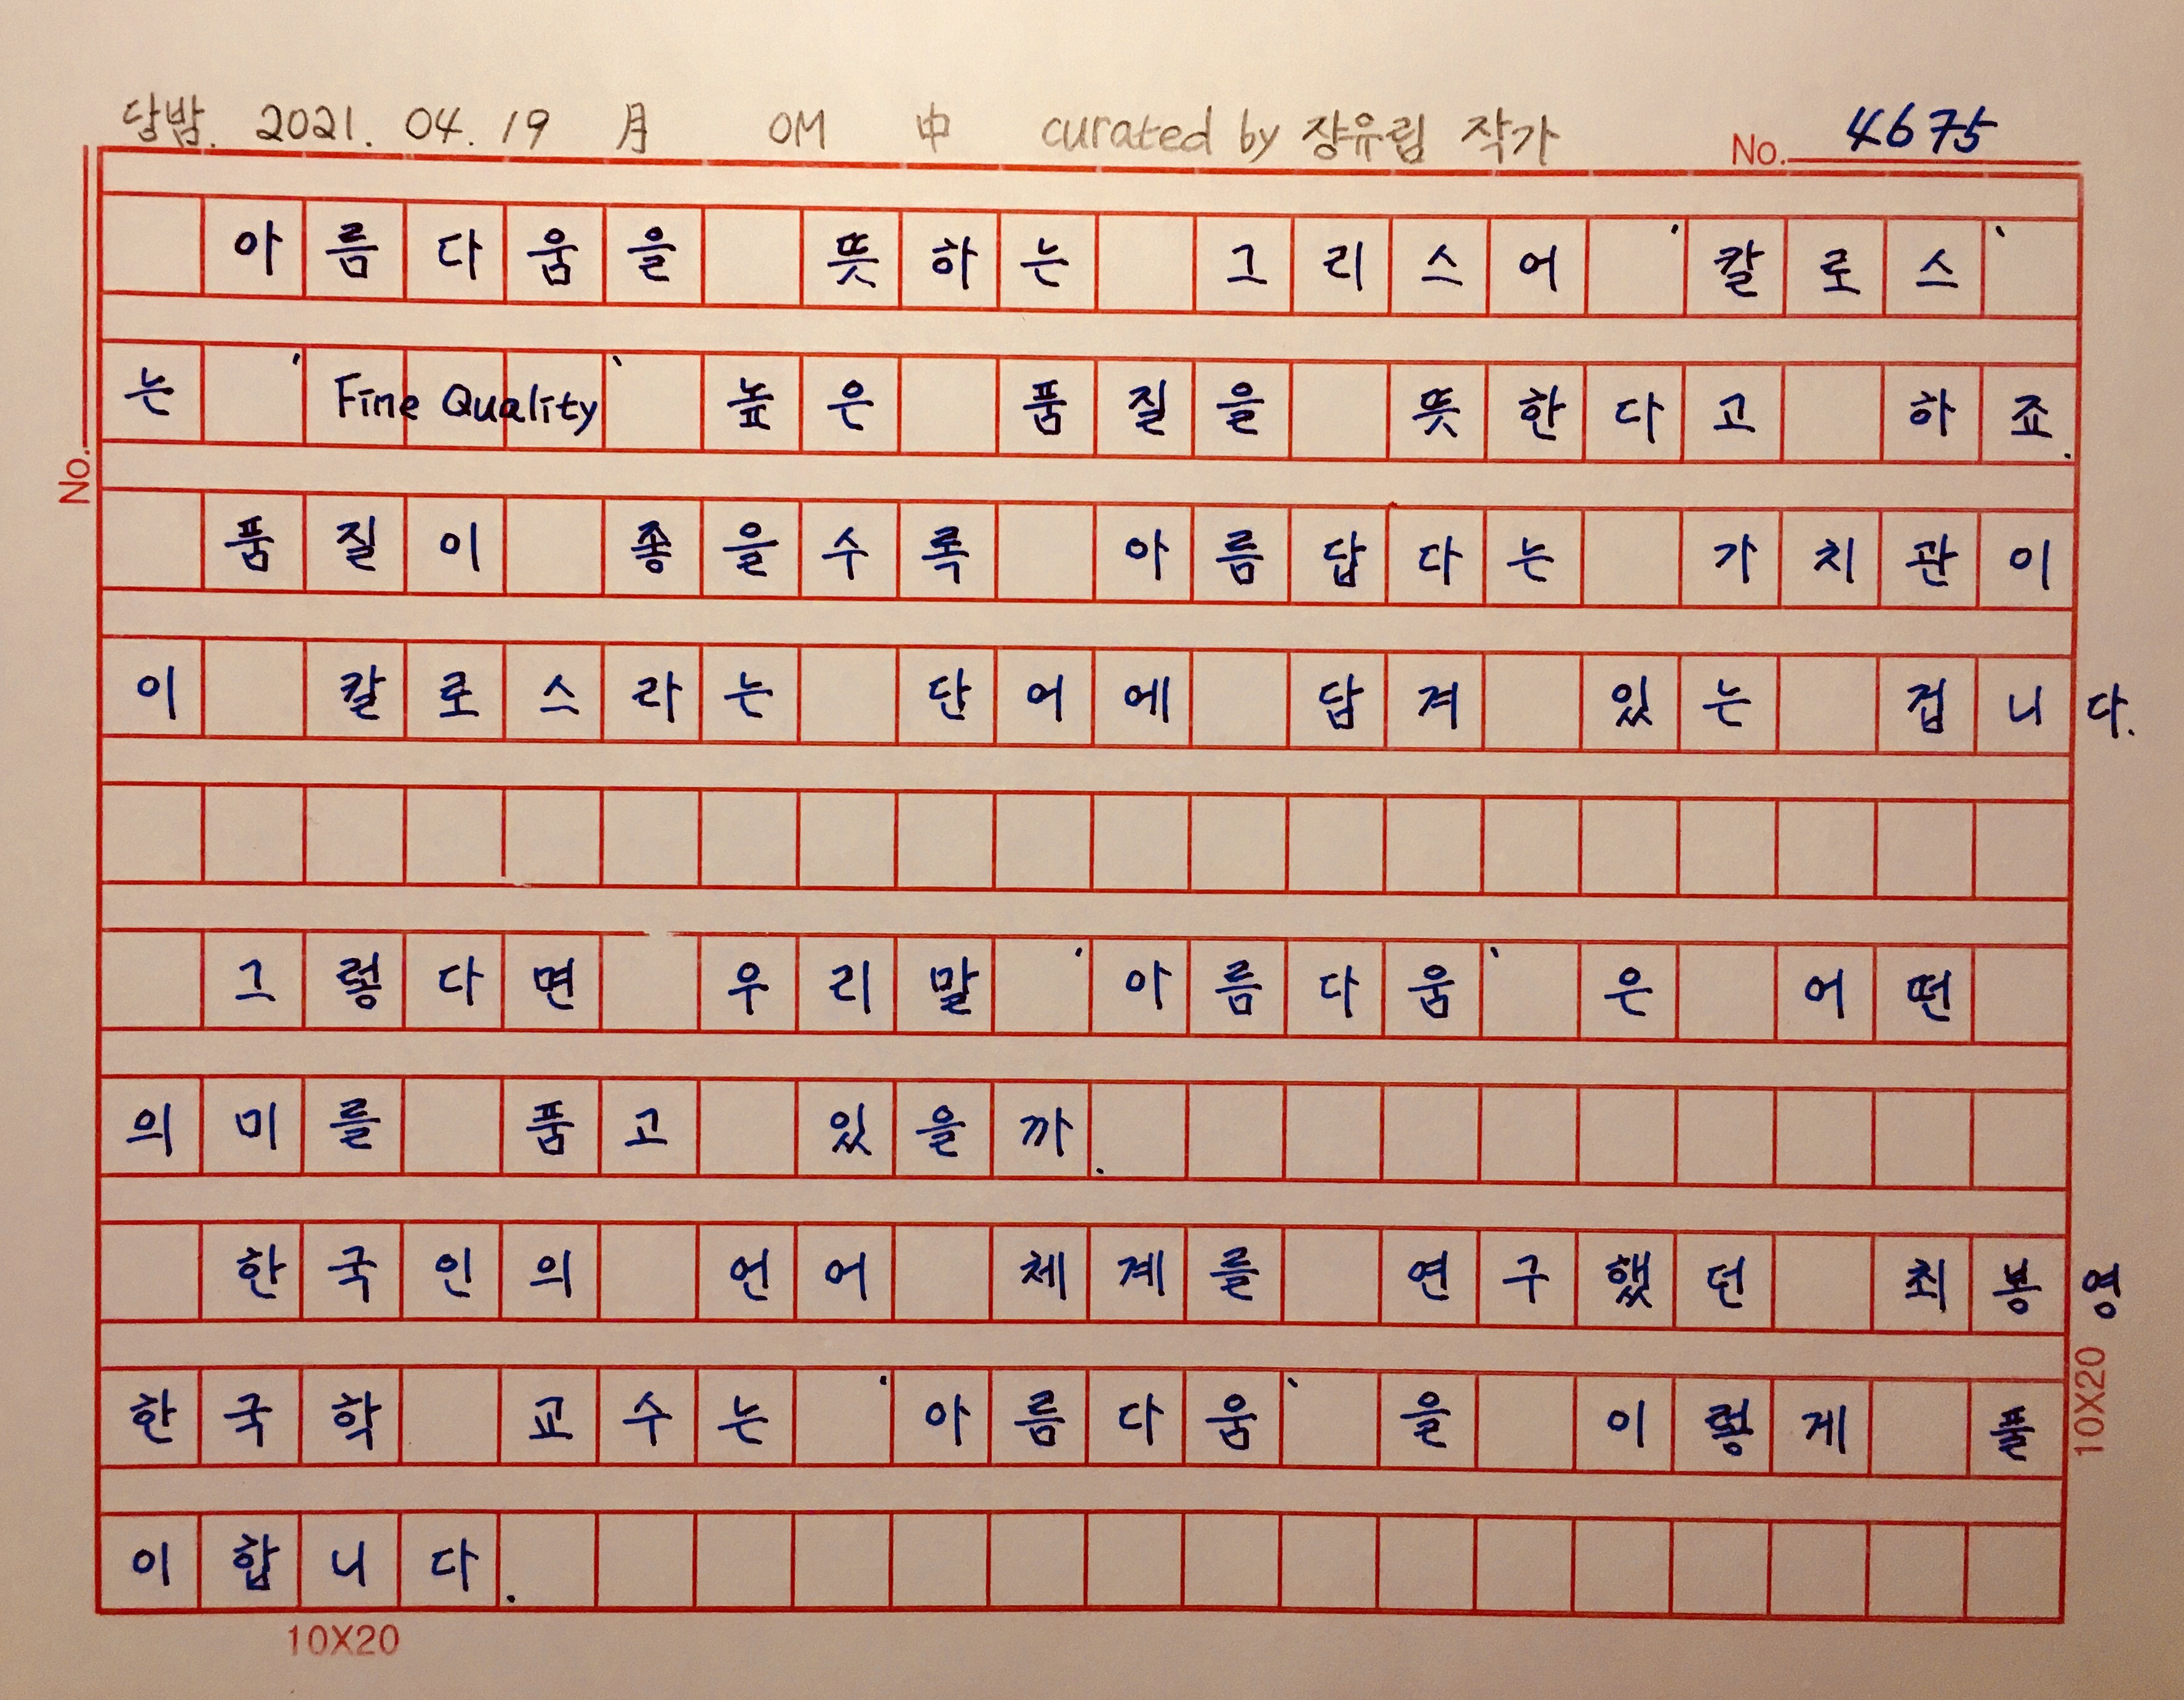 당밤. 2021. 04. 19 月 OM 中 curated by 장유림 작가 No. 4675
아름다움을 뜻하는 그리스어 '칼로스'
는 'Fine Quality' 높은 품질을 뜻한다고 하죠.
No.
품질이 좋을수록 아름답다는 가치관이
이 칼로스라는 단어에 담겨 있는 겁니다.
그렇다면 우리말 '아름다움'은 어떤
의미를 품고 있을까.
한국인의 언어 체계를 연구했던 최봉영
한국학 교수는 '아름다움'을 이렇게 풀
10X20
이합니다.
10X20